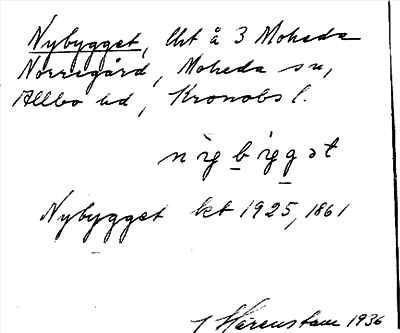 Nybygget, lht å 3 Moheda
Norregård, Moheda sn,
Allbo hd, Kronobs l.
nỳbýgət
Nybygget kt 1925, 1861
Härenstam 1936